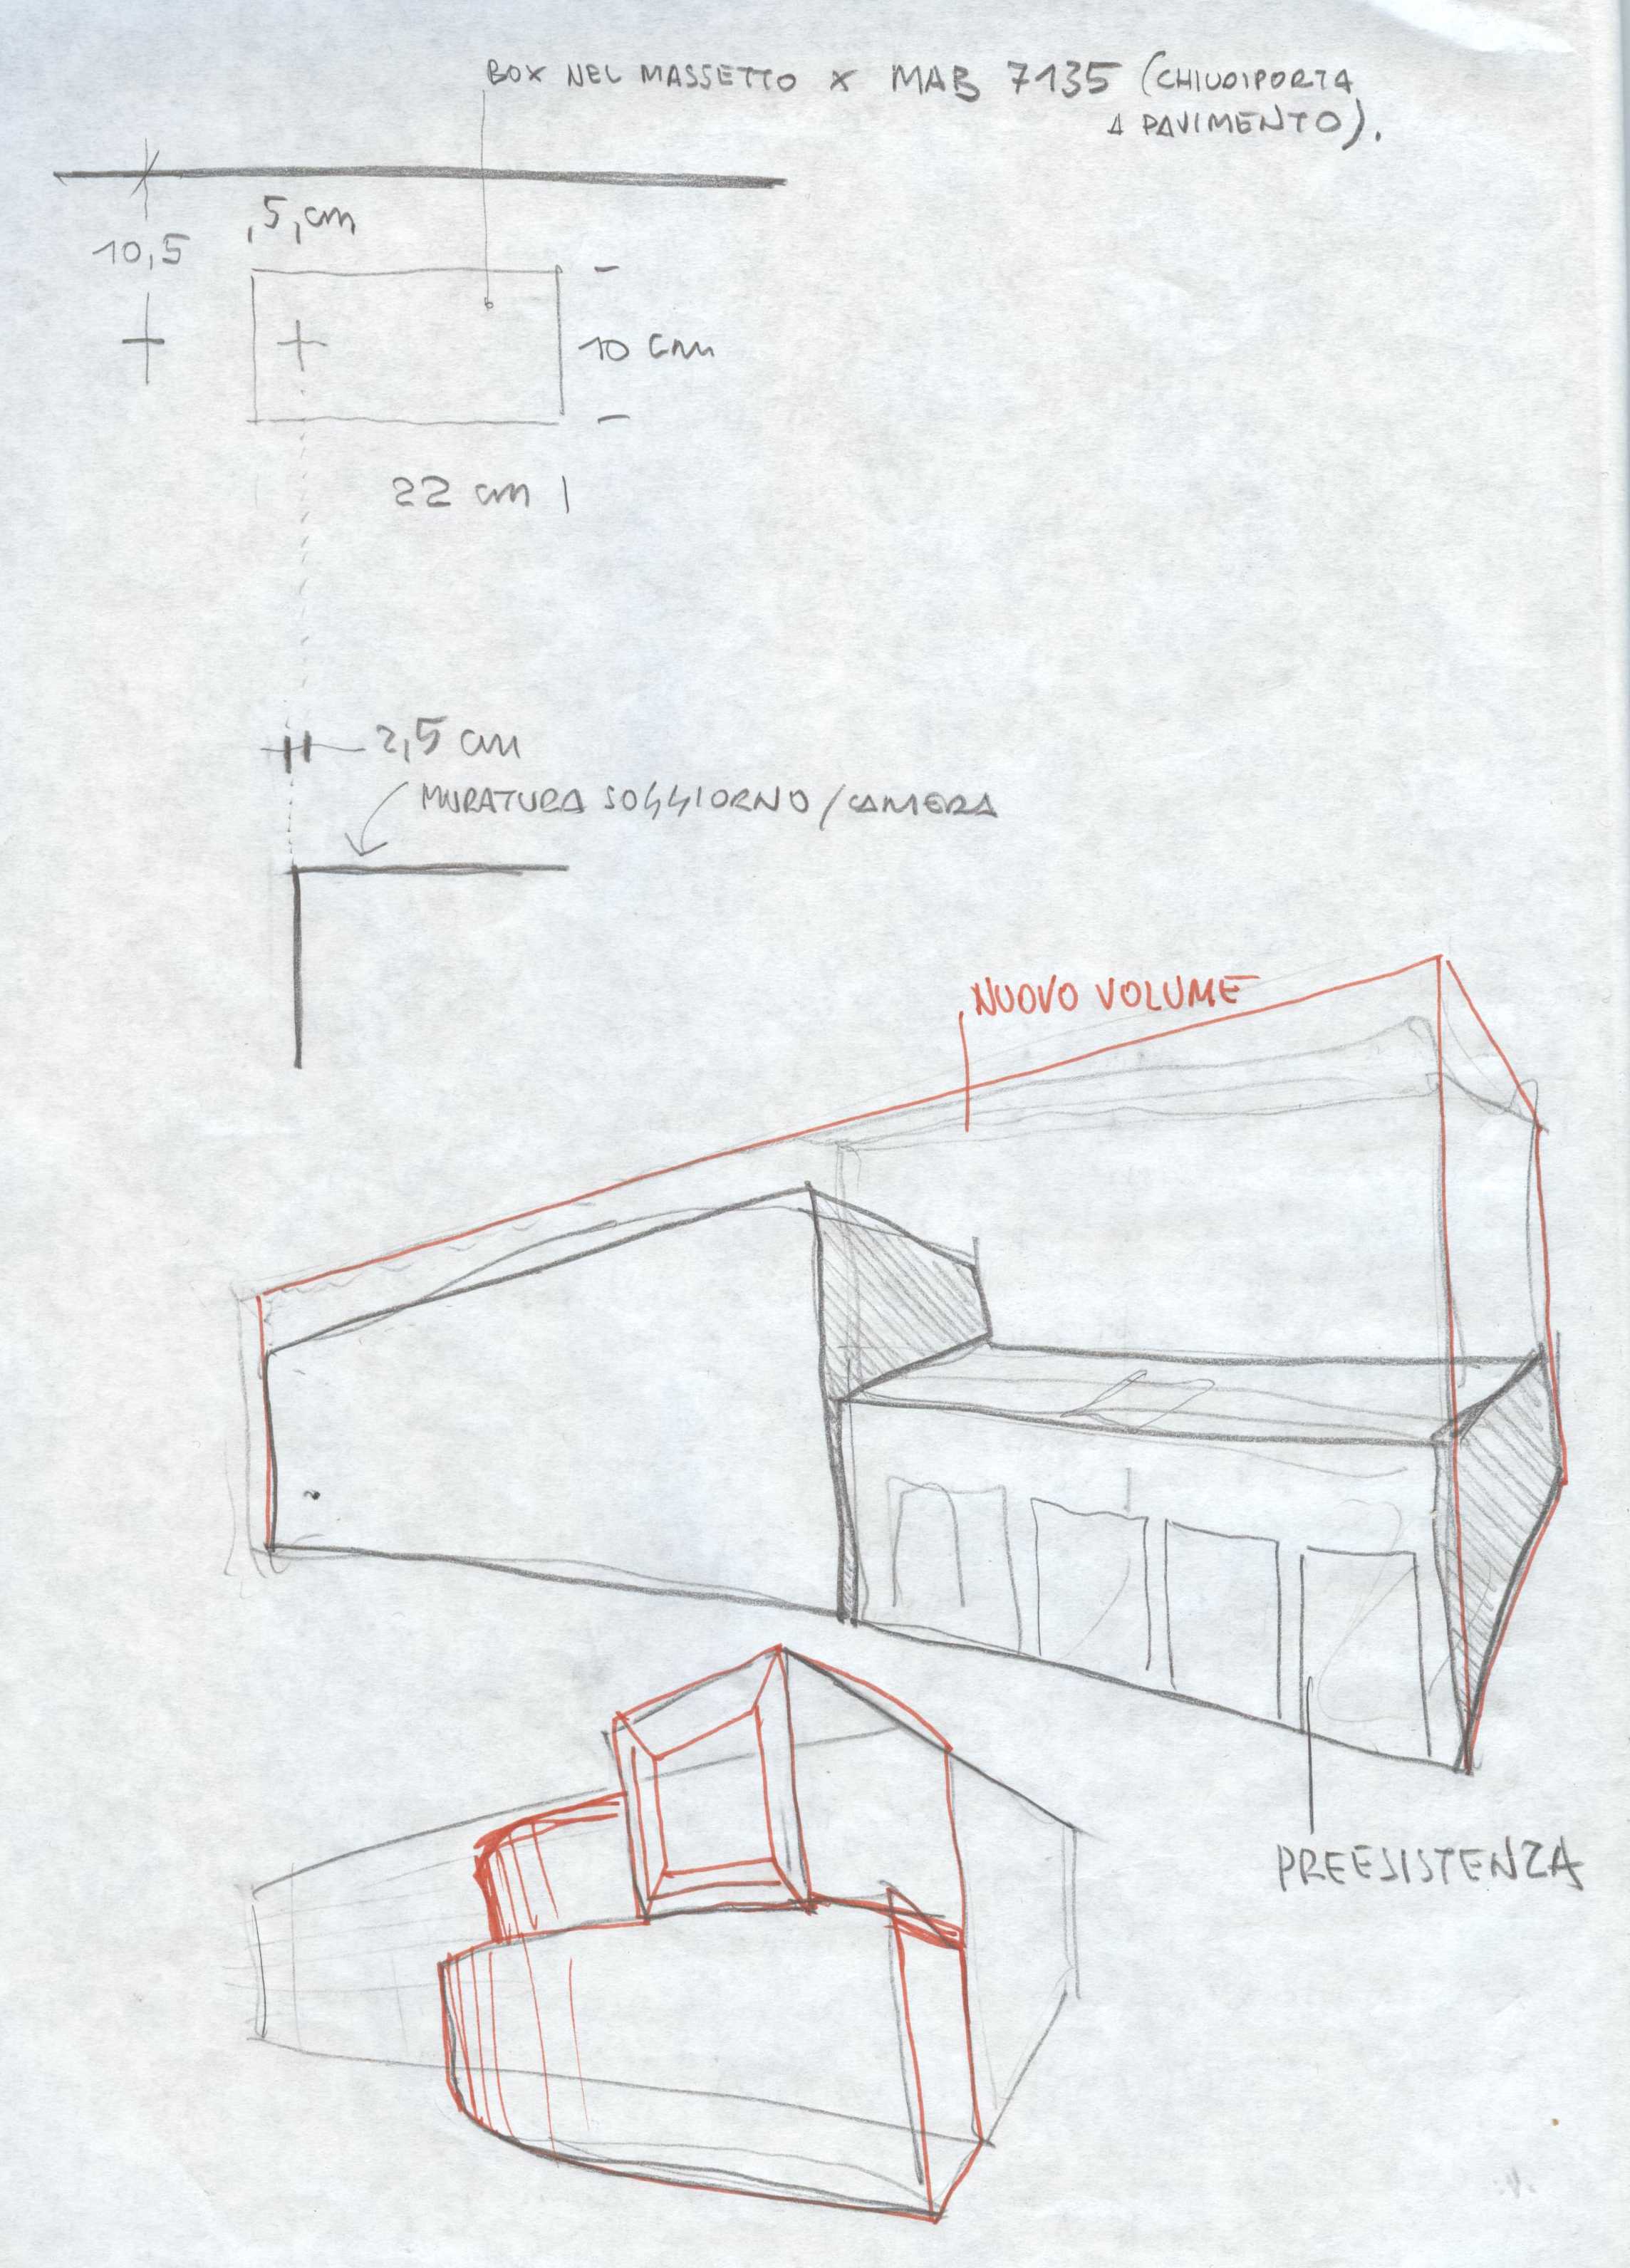 BOX NEL MASSETTO X MAB 7135 (CHIUDIPORTA
A PAVIMENTO).
,5, cm
10,5
10 cm
22 cm
2,5 cm
MURATURA SOGGIORNO/CAMERA
NUOVO VOLUME
PREESISTENZA